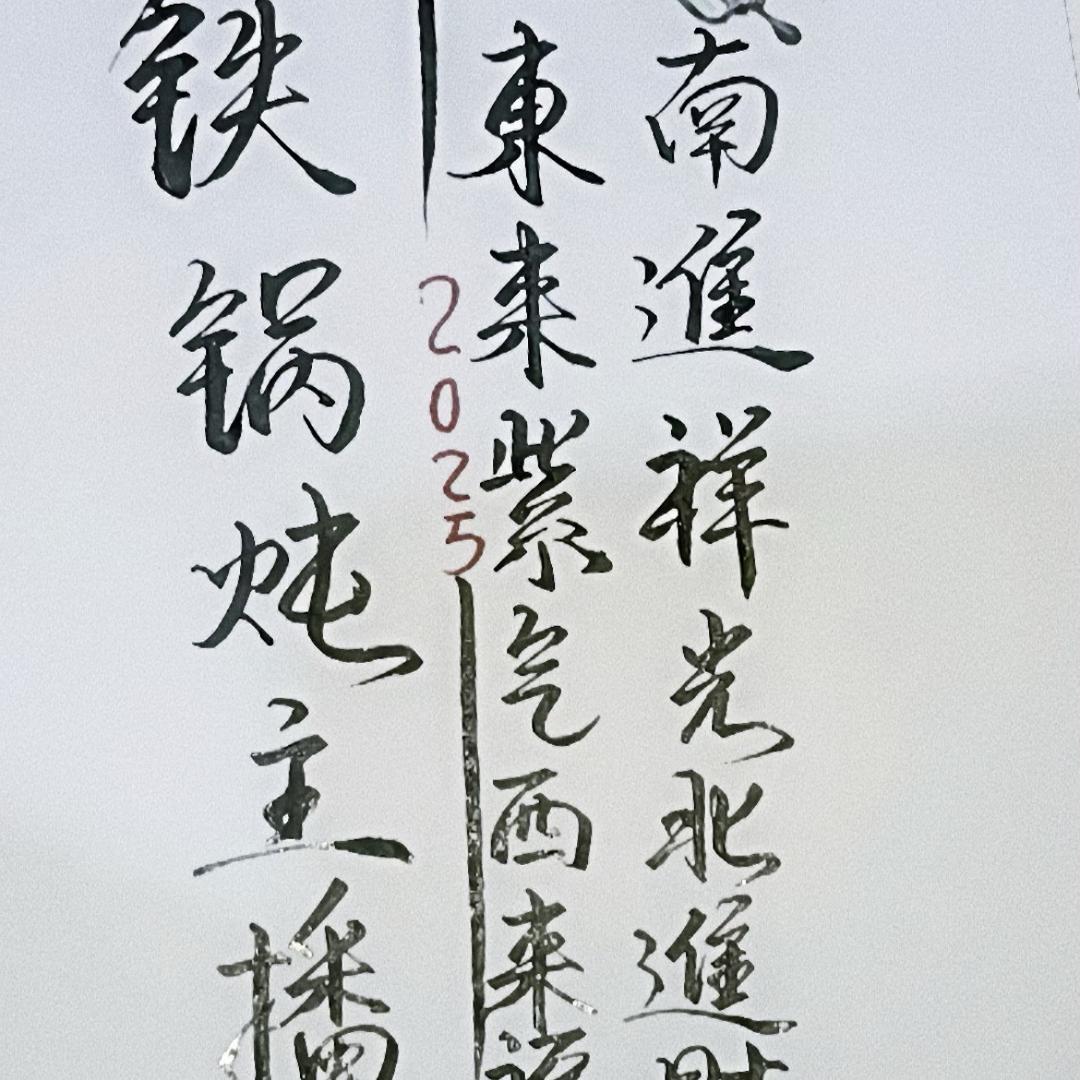 南進祥光北進財
東来紫气西来
2025
铁锅炖主播